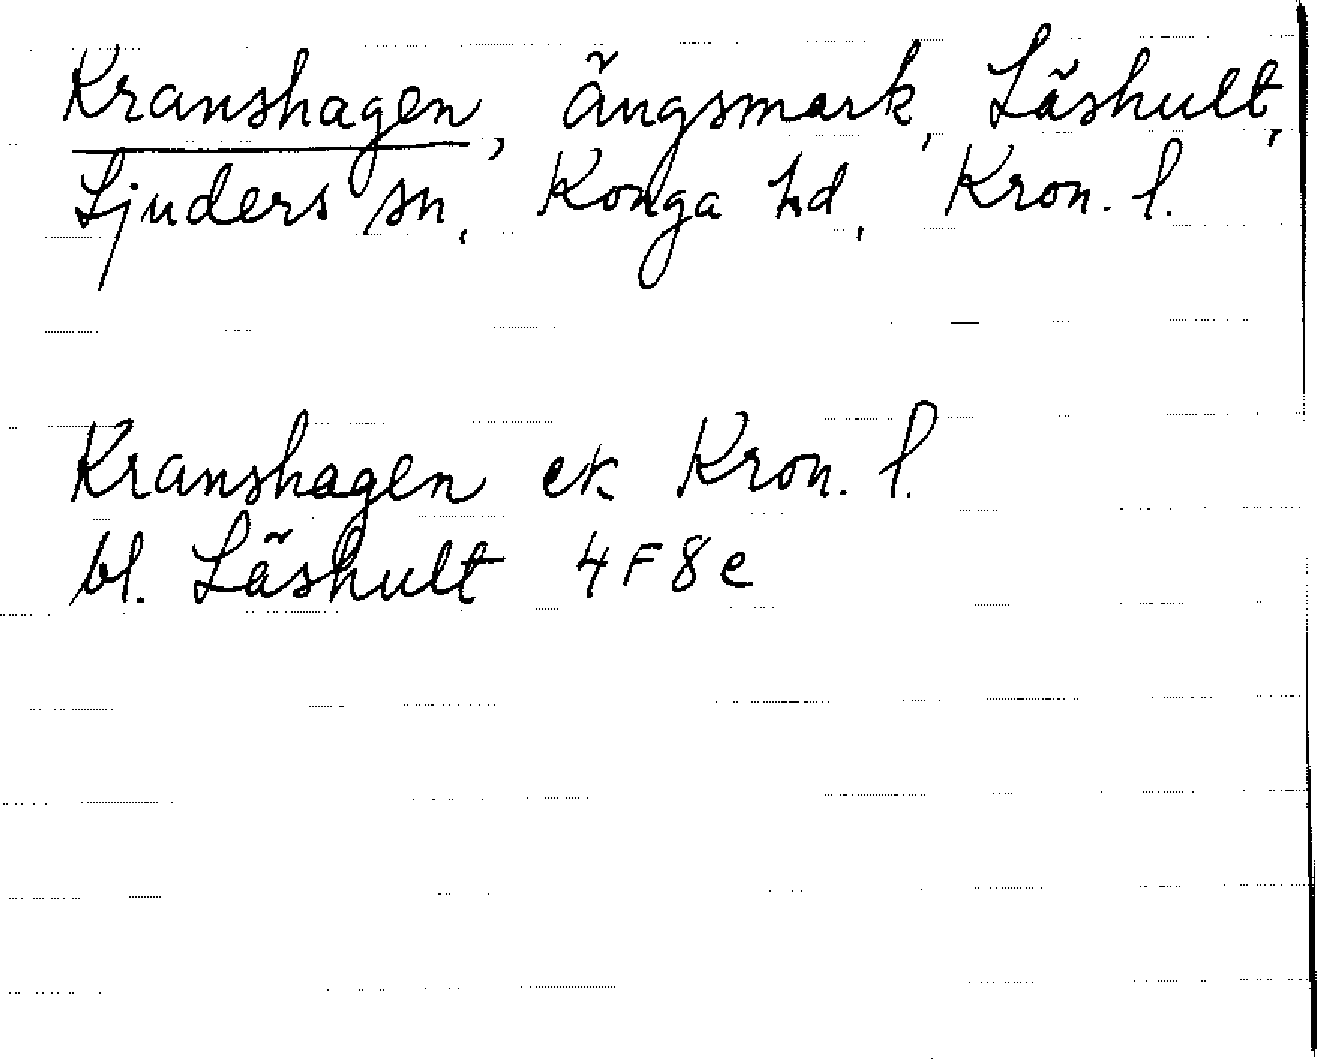 Kranshagen, Ängsmark, Läshult,
Ljuders sn, Konga hd, Kron. l.
Kranshagen ek Kron. l.
bl. Läshult 4F8e